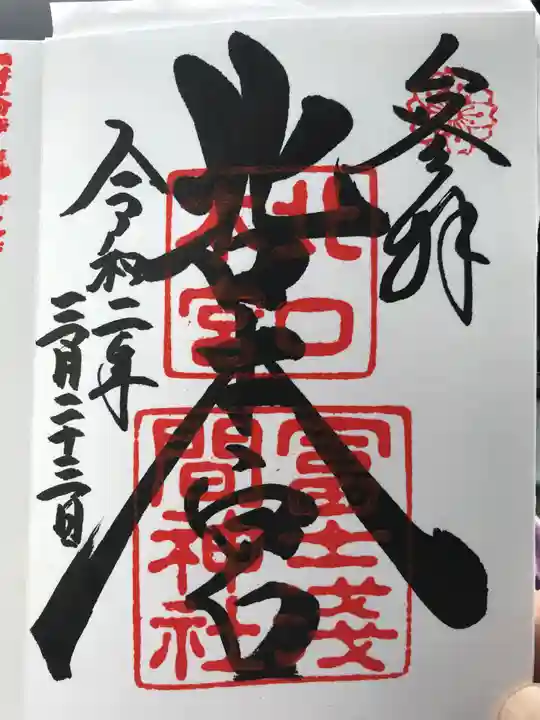 参拝
北口本宮
北口
本宮
冨士淺
間神社
令和二年
三月二十三日